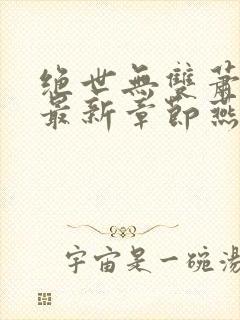 绝世無雙蕭
最新章節燕
宇宙是一碗湯